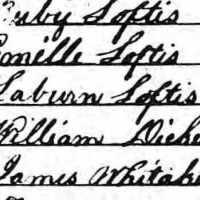 uby Loftis
onelle Loftis
Laburn Loftis
William Diche
James Whitake